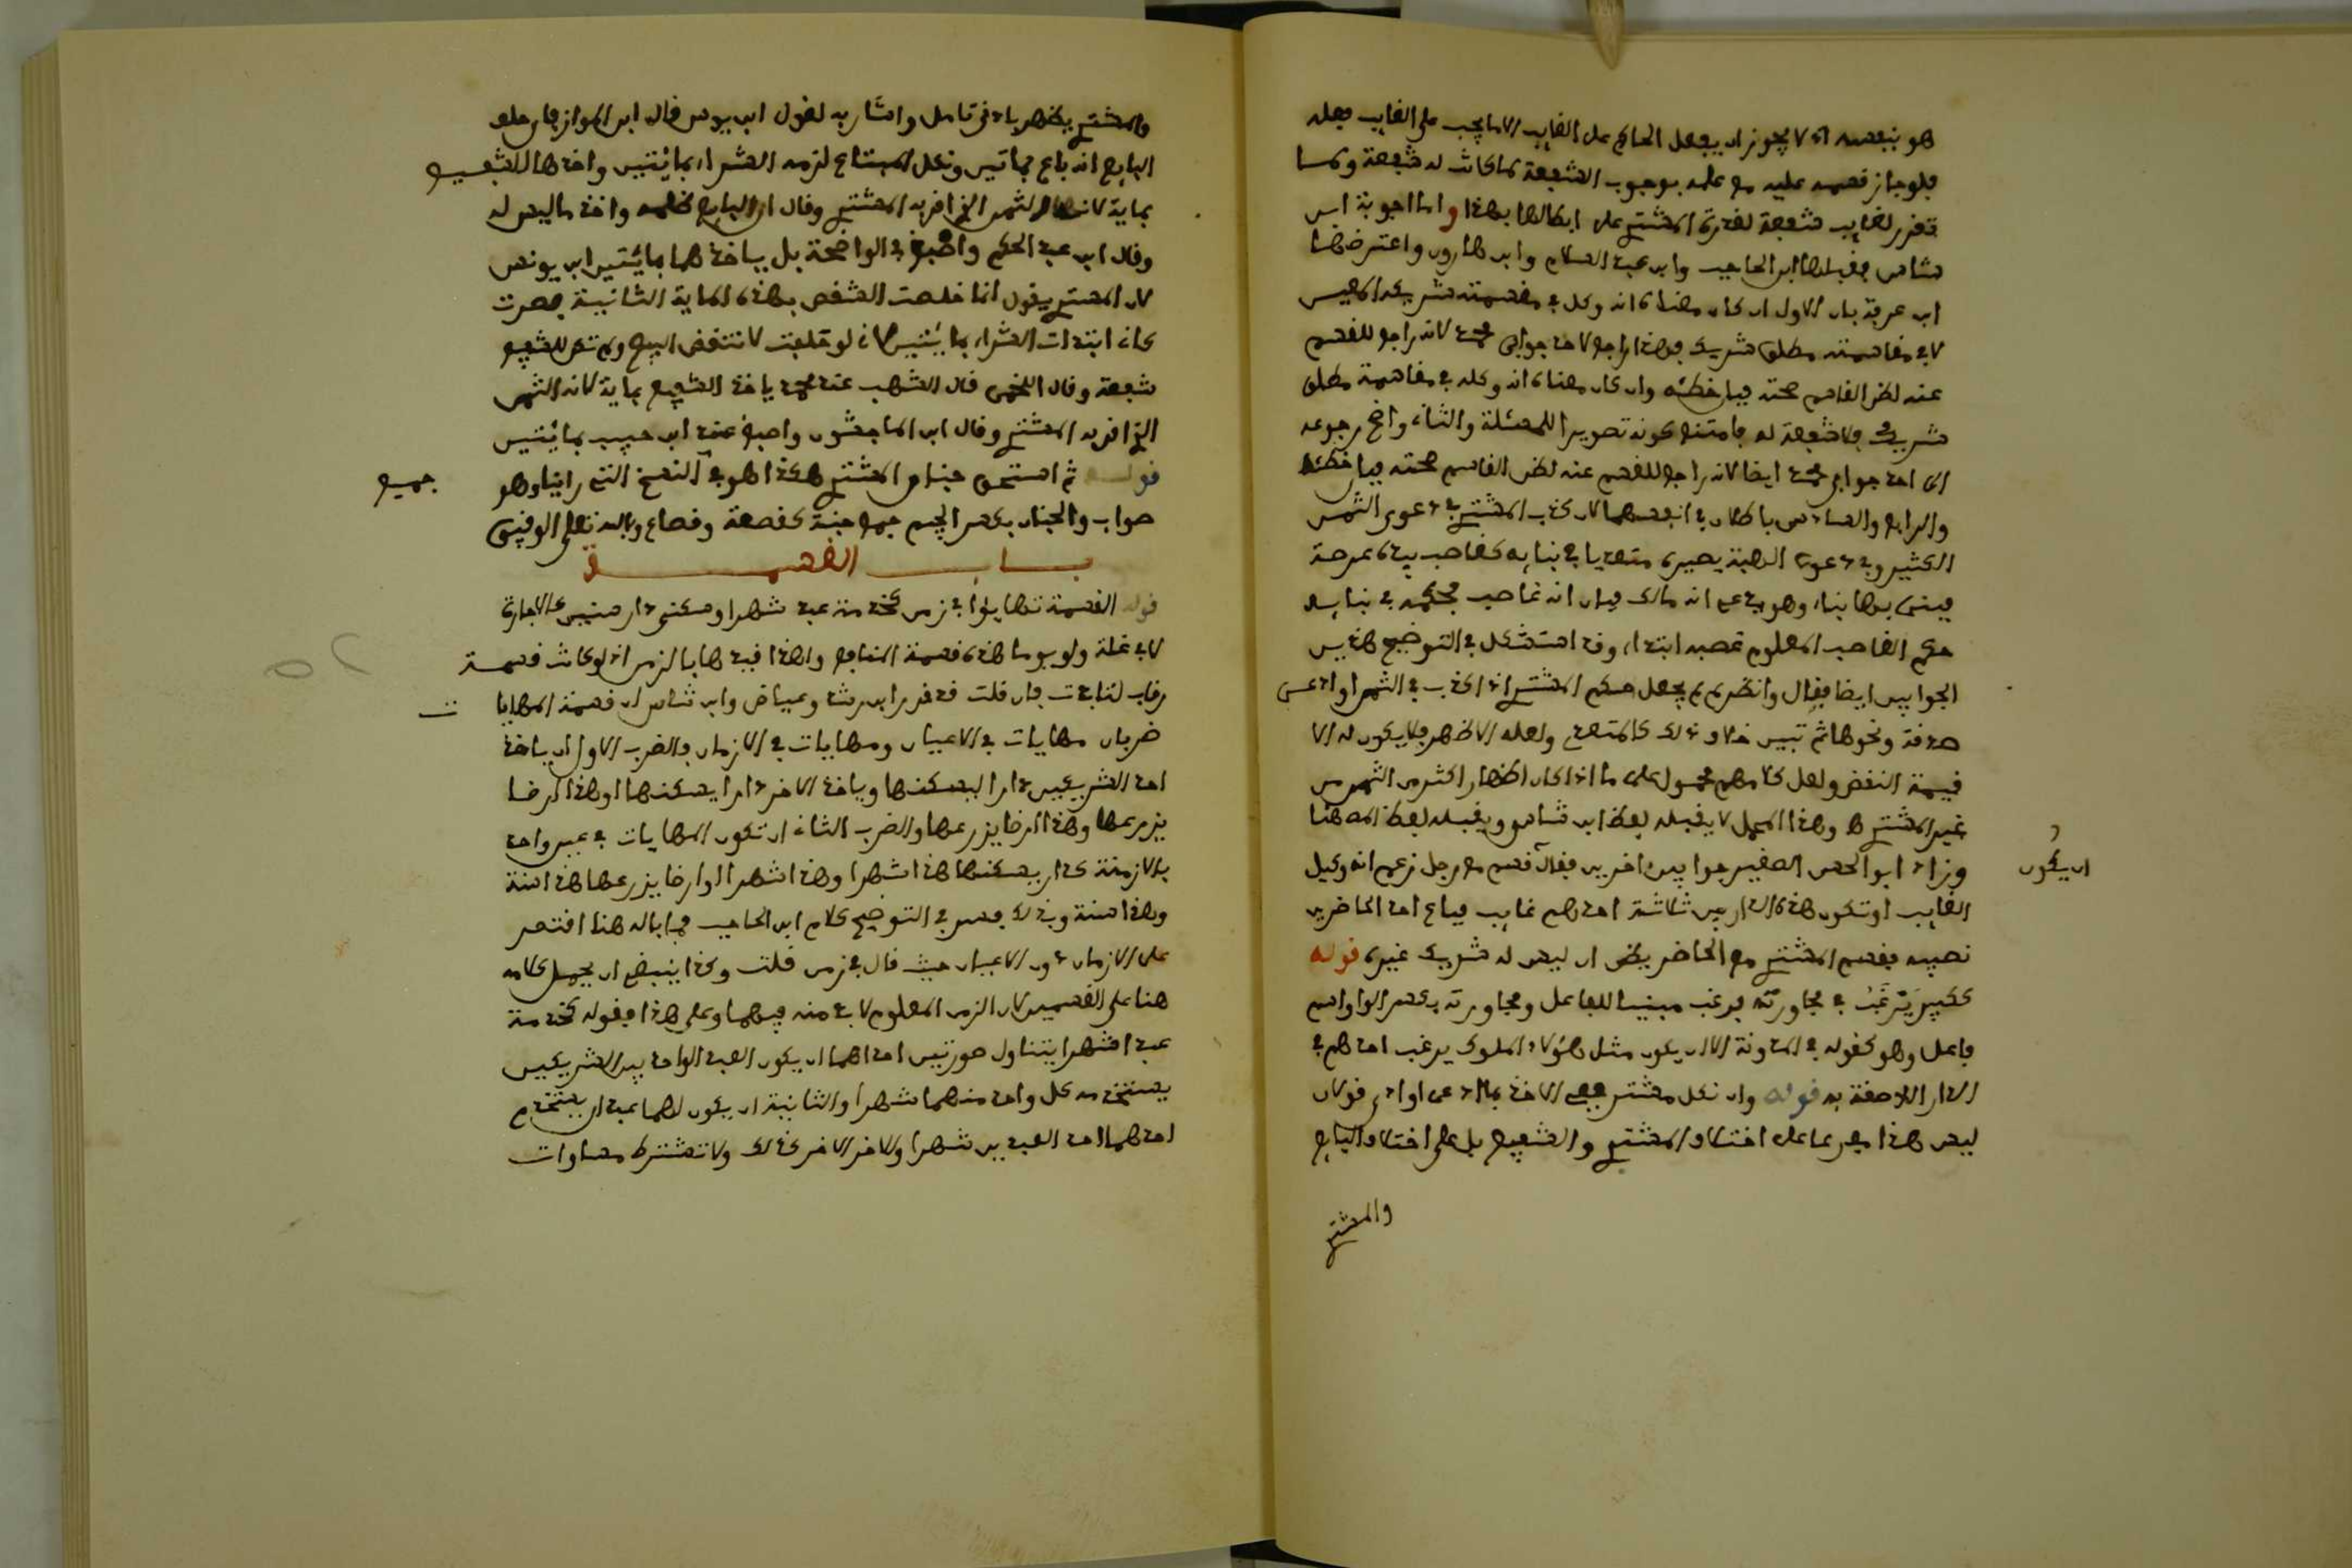 هو بنفسه اذ لا يجوز ان يفعل الحاكم على الغايب الا ما يجب على الغايب فعله
فلو جاز قسمه عليه مع علمه بوجوب الشفعة لما كانت له شفعة ولما
تقرر لغايب شفعة لقدرة المشتري على ابطالها بهذا واما اجوبة ابن
شاس فقبلها ابن الحاجب وابن عبد السلام وابن هارون واعترضها
ابن عرفة بان الاول ان كان معناه انه وكل في مقسمته شريكه المعين
لا في مقاسمته مطلق شريك فهذا راجع لاحد جوابي محمد لانه راجع للقسم
عنه لظن القاسم صحته فبان خطئه وان كان معناه انه وكله في مقاسمة مطلق
شريك فلا شفعة له فامتنع كونه تصويرا للمسئلة والثاني واضح رجوعه
الى احد جوابي محمد ايضا لانه راجع للقسم عنه لظن القاسم صحته فبان خطئه
والرابع والسادس باطلان في انفسهما لان كذب المشتري في دعوى الثمن
الكثير وفي دعوى الهبة يصيره متعديا في بنايه كغاصب بيده عرصة
فبنى بها بناء وهو يدعي انه مالك فبان انه غاصب فحكمه في بنايه
حكم الغاصب المعلوم غصبه ابتداء وقد استشكل في التوضيح هذين
الجوابين ايضا فقال وانظر لم لم يجعل حكم المشتري اذا كذب في الثمن او ادعى
صدقة ونحوها ثم تبين خلاف ذلك كالمتعدي ولعله الاظهر فلا يكون له الا
قيمة النقض ولعل كلامهم محمول على ما اذا كان اظهار اكثر من الثمن من
غير المشتري ه وهذا المحمل لا يقبله لفظ ابن شاس ويقبله لفظ المص هنا
وزاد ابو الحسن الصغير جوابين اخرين فقال قسم مع رجل زعم انه وكيل
الغايب او تكون هذه الدار بين ثلاثة احدهم غايب فباع احد الحاضرين
نصيبه فقسم المشتري مع الحاضر يظن ان ليس له شريك غيره قوله
ككبير يرغب في مجاورته يرغب مبنيا للفاعل ومجاورته بكسر الواو اسم
فاعل وهو كقوله في المدونة الا ان يكون مثل هؤلاء الملوك يرغب احدهم في
الدار اللاصقة به قوله وان نكل مشتر ففي الاخذ بما ادعى او ادى قولان
ليس هذا مفرعا على اختلاف المشتري والشفيع بل على اختلاف البايع
والمشتري
ان يكون
والمشتري يظهر بادنى تامل واشار به لقول ابن يونس قال ابن المواز فان حلف
البايع انه باع بمايتين ونكل المبتاع لزمه الشراء بمائتين واخذها الشفيع
بماية لانها الثمن الذي اقر به المشتري وقال ان البايع ظلمه واخذ ما ليس له
وقال ابن عبد الحكم واصبغ في الواضحة بل ياخذها بمائتين ابن يونس
لان المشتري يقول انما خلصت الشقص بهذه الماية الثانية فصرت
كاني ابتدات الشراء بمائتين لاني لو حلفت لانتقض البيع ولم تتم للشفيع
شفعة وقال اللخمي قال اشهب عند محمد ياخذ الشفيع بماية لانه الثمن
الذي اقر به المشتري وقال ابن الماجشون واصبغ عند ابن حبيب بمائتين
قوله ثم استحق جنان المشتري هكذا هو في النسخ التي رايناها وهو
جميع
صواب والجنان بكسر الجيم جمع جنة كقصعة وقصاع وبالله تعالى التوفيق
باب القسمة
قوله القسمة تهايؤا في زمن كخدمة عبد شهرا وسكنى دار سنين كالاجارة
لا في غلة ولو يوما هذه قسمة المنافع ولهذا قيدها بالزمن اذ لو كانت قسمة
رقاب لتابدت فان قلت قد قرر ابن رشد وعياض وابن شاس ان قسمة المهايات
ضربان مهايات في الاعيان ومهايات في الازمان فالضرب الاول ان ياخذ
احد الشريكين دارا ليسكنها وياخذ الاخر دارا يسكنها او هذا ارضا
يزرعها وهذا ارضا يزرعها والضرب الثاني ان تكون المهايات في عين واحد
بالازمنة كدار يسكنها هذا شهرا وهذا شهرا او ارضا يزرعها هذا سنة
وهذا سنة وبذلك فسر في التوضيح كلام ابن الحاجب فما باله هنا اقتصر
على الازمان دون الاعيان حيث قال في زمن قلت وكذا ينبغي ان يحمل كلامه
هنا على القسمين لان الزمن المعلوم لا بد منه فيهما وعلى هذا فقوله كخدمة
عبد اشهرا يتناول صورتين احداهما ان يكون العبد الواحد بين الشريكين
يستخدمه كل واحد منهما شهرا والثانية ان يكون لهما عبدان يستخدم
احدهما احد العبدين شهرا والاخر الاخر كذلك ولا تشترط مساوات